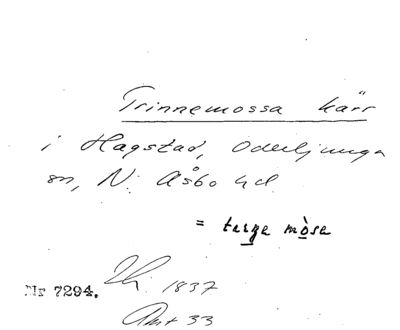 Trinnemossa kärr
i Hagstad, Oderljunga
sn, N. Åsbo hd
= terge mòse
Nr 7294.
1837
Akt 33